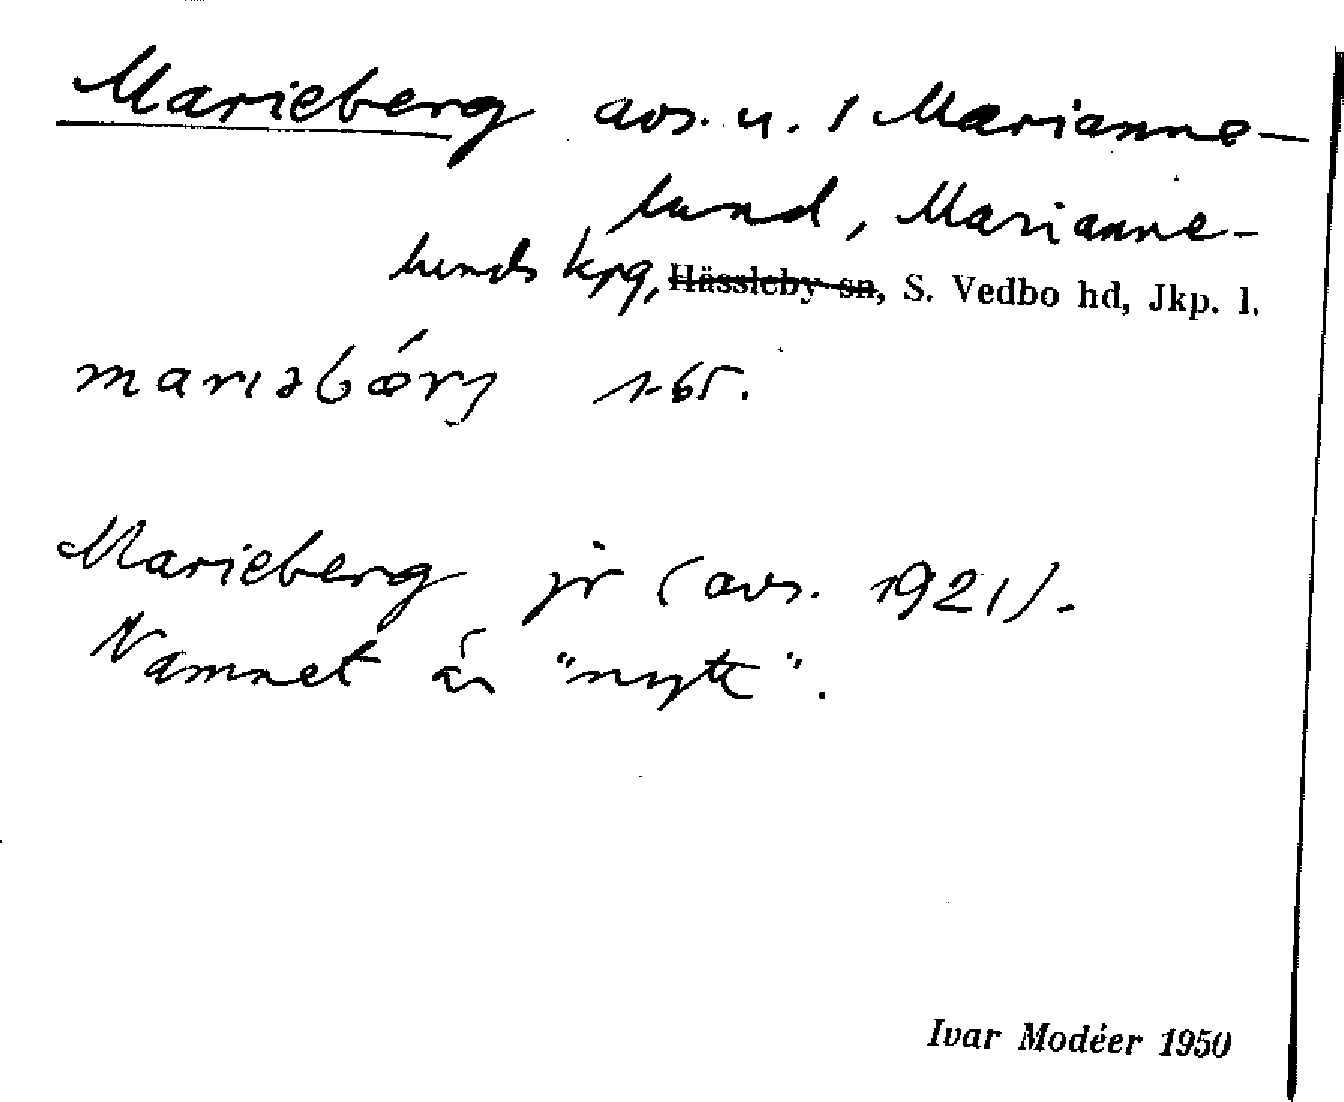 Marieberg avs. u. 1 Marianne-
lund, Marianne-
lunds kpg, Hässleby sn, S. Vedbo hd, Jkp. l.
mariəbǽrj 1-65.
Marieberg jr (avs. 1921).
Namnet är "nytt".
Ivar Modéer 1950